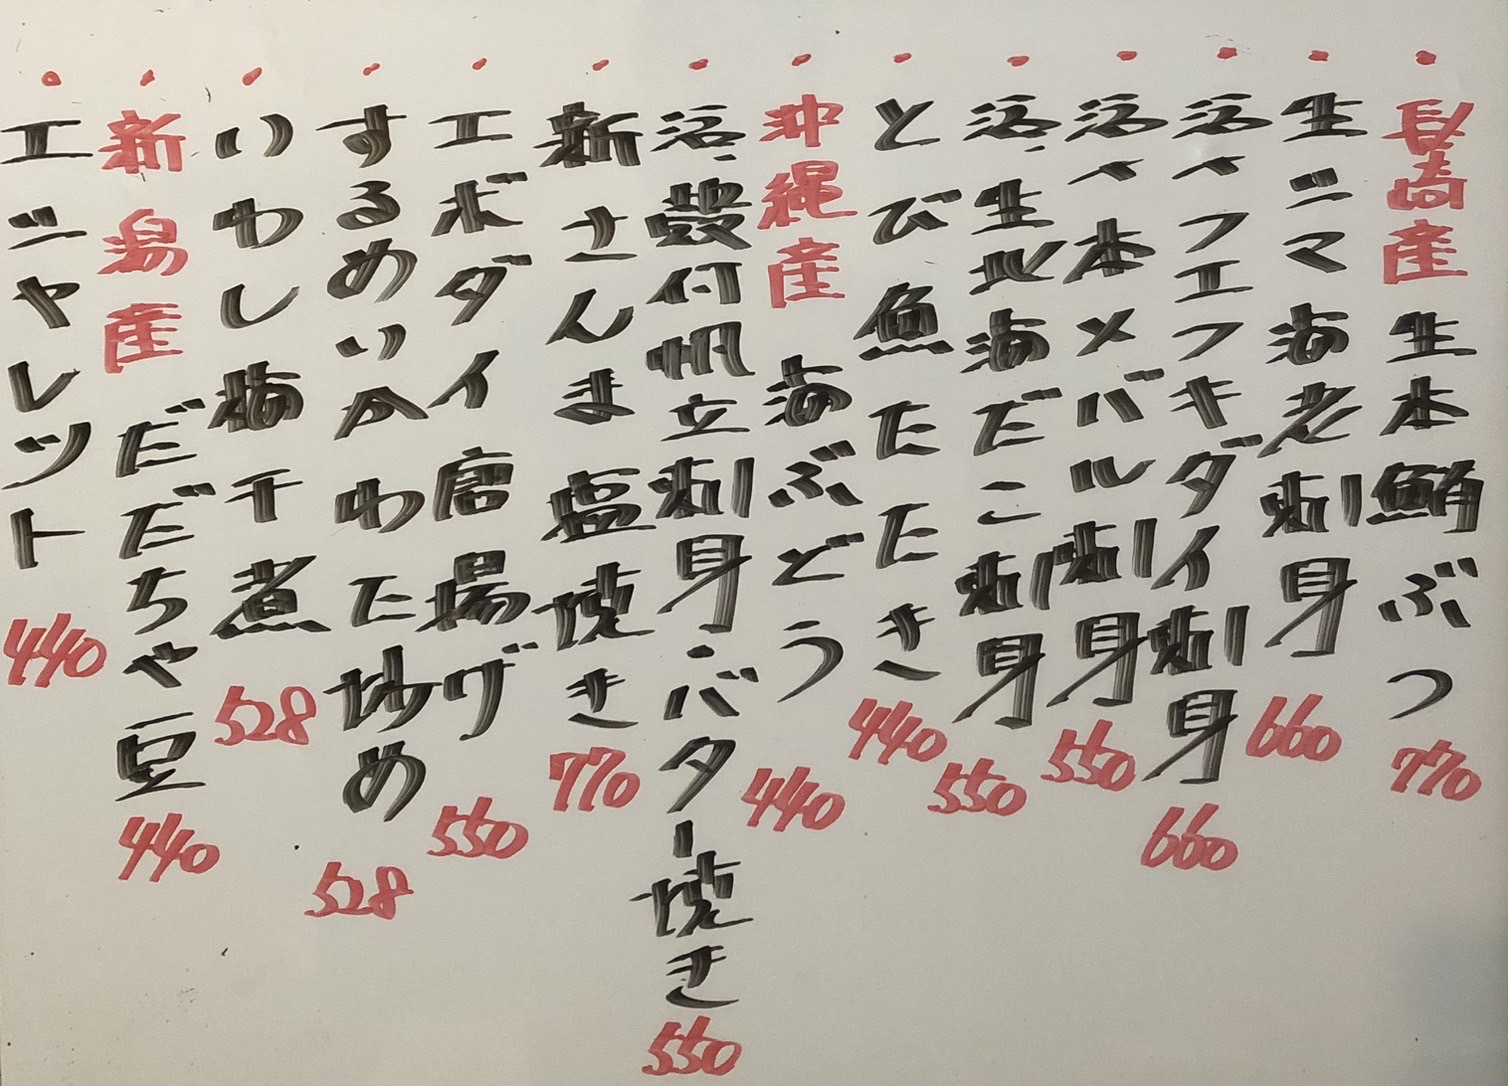 ・長崎産 生本鮪ぶつ 770
・生シマ海老刺身 660
・活〆フエフキダイ刺身 660
・活〆本メバル刺身 550
・活、生北海だこ刺身 550
・とび魚たたき 440
・沖縄産 海ぶどう 440
・活、殻付帆立刺身・バター焼き 550
・新さんま塩焼き 770
・エボダイ唐揚げ 550
・するめいかわた炒め 528
・いわし梅干煮 528
・新潟産 だだちゃ豆 440
・エシャレット 440